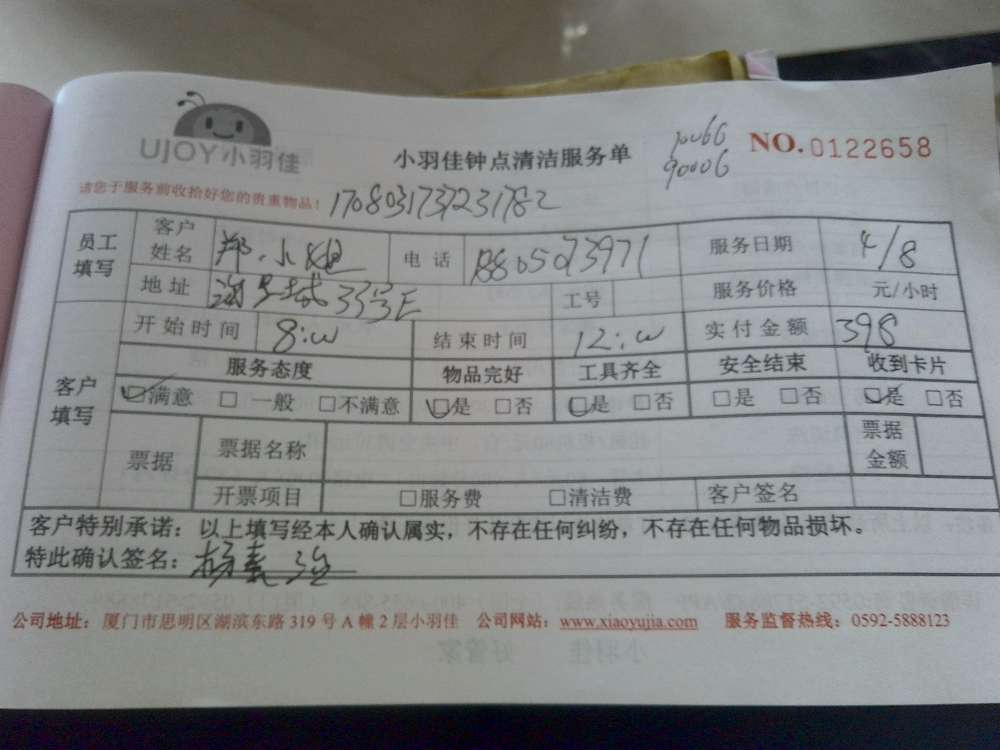 UJOY小羽佳
小羽佳钟点清洁服务单
10066
90006
NO.0122658
请您于服务前收拾好您的贵重物品！
员工填写 客户姓名 郑小姐 电话 服务日期 4/8
地址 33号E 工号 服务价格 元/小时
客户填写 开始时间 8:00 结束时间 12:00 实付金额 398
服务态度 物品完好 工具齐全 安全结束 收到卡片
☑满意 □一般 □不满意 ☑是 □否 ☑是 □否 □是 □否 ☑是 □否
票据 票据名称 票据金额
开票项目 □服务费 □清洁费 客户签名
客户特别承诺：以上填写经本人确认属实，不存在任何纠纷，不存在任何物品损坏。
特此确认签名：
公司地址：厦门市思明区湖滨东路319号A幢2层小羽佳 公司网站：www.xiaoyujia.com 服务监督热线：0592-5888123